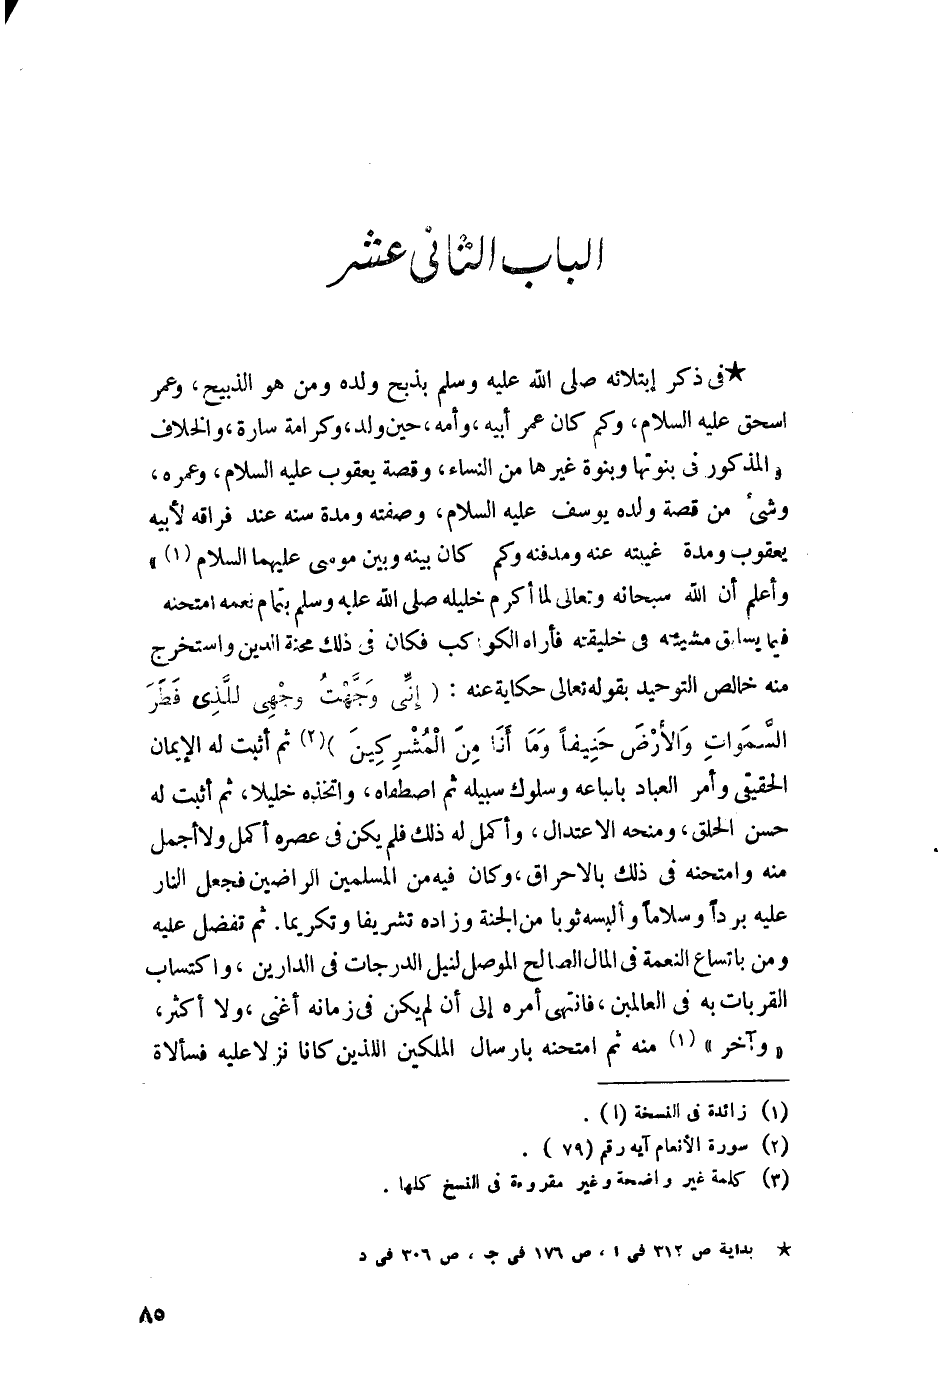 الباب الثانى عشر
★ فى ذكر إبتلائه صلى الله عليه وسلم بذبح ولده ومن هو الذبيح، وعمر
اسحق عليه السلام، وكم كان عمر أبيه ،وأمه ،حين ولد ،وكرامة سارة ،والخلاف
« المذكور فى بنوتها وبنوة غيرها من النساء، وقصة يعقوب عليه السلام، وعمره ،
وشئ من قصة ولده يوسف عليه السلام، وصفته ومدة سنه عند فراقه لأبيه
يعقوب ومدة غيبته عنه ومدفنه وكم كان بينه وبين موسى عليهما السلام (١) »
وأعلم أن الله سبحانه وتعالى لما أكرم خليله صلى الله عليه وسلم بتمام نعمه امتحنه
فيما يسابق مشيئته فى خليقته فأراه الكواكب فكان فى ذلك محنة الدين واستخرج
منه خالص التوحيد بقوله تعالى حكاية عنه : ( إِنِّى وَجَّهْتُ وجْهِى للَّذِى فَطَرَ
السَّمَواتِ وَالأَرْضَ حَنِيفاً وَمَا أَنَا مِنَ الْمُشْرِكِينَ )(٢) ثم أثبت له الإيمان
الحقيقى وأمر العباد باتباعه وسلوك سبيله ثم اصطفاه، واتخذه خليلا، ثم أثبت له
حسن الخلق، ومنحه الاعتدال، وأكمل له ذلك فلم يكن فى عصره أكمل ولا أجمل
منه وامتحنه فى ذلك بالاحراق، وكان فيه من المسلمين الراضين فجعل النار
عليه برداً وسلاماً وألبسه ثوبا من الجنة وزاده تشريفا وتكريما. ثم تفضل عليه
ومن باتساع النعمة فى المال الصالح الموصل لنيل الدرجات فى الدارين ، واكتساب
القربات به فى العالمين ،فانتهى أمره إلى أن لم يكن فى زمانه أغنى ،ولا أكثر،
« وآخر » (١) منه ثم امتحنه بارسال الملكين اللذين كانا نزلا عليه فسألاة
(١) زائدة فى النسخة (ا) .
(٢) سورة الأنعام آيه رقم (٧٩ ) .
(٣) كلمة غير واضحة وغير مقروءة فى النسخ كلها .
★ بداية ص ٣١٢ فى ا ، ص ١٧٦ فى جـ ، ص ٣٠٦ فى د
٨٥